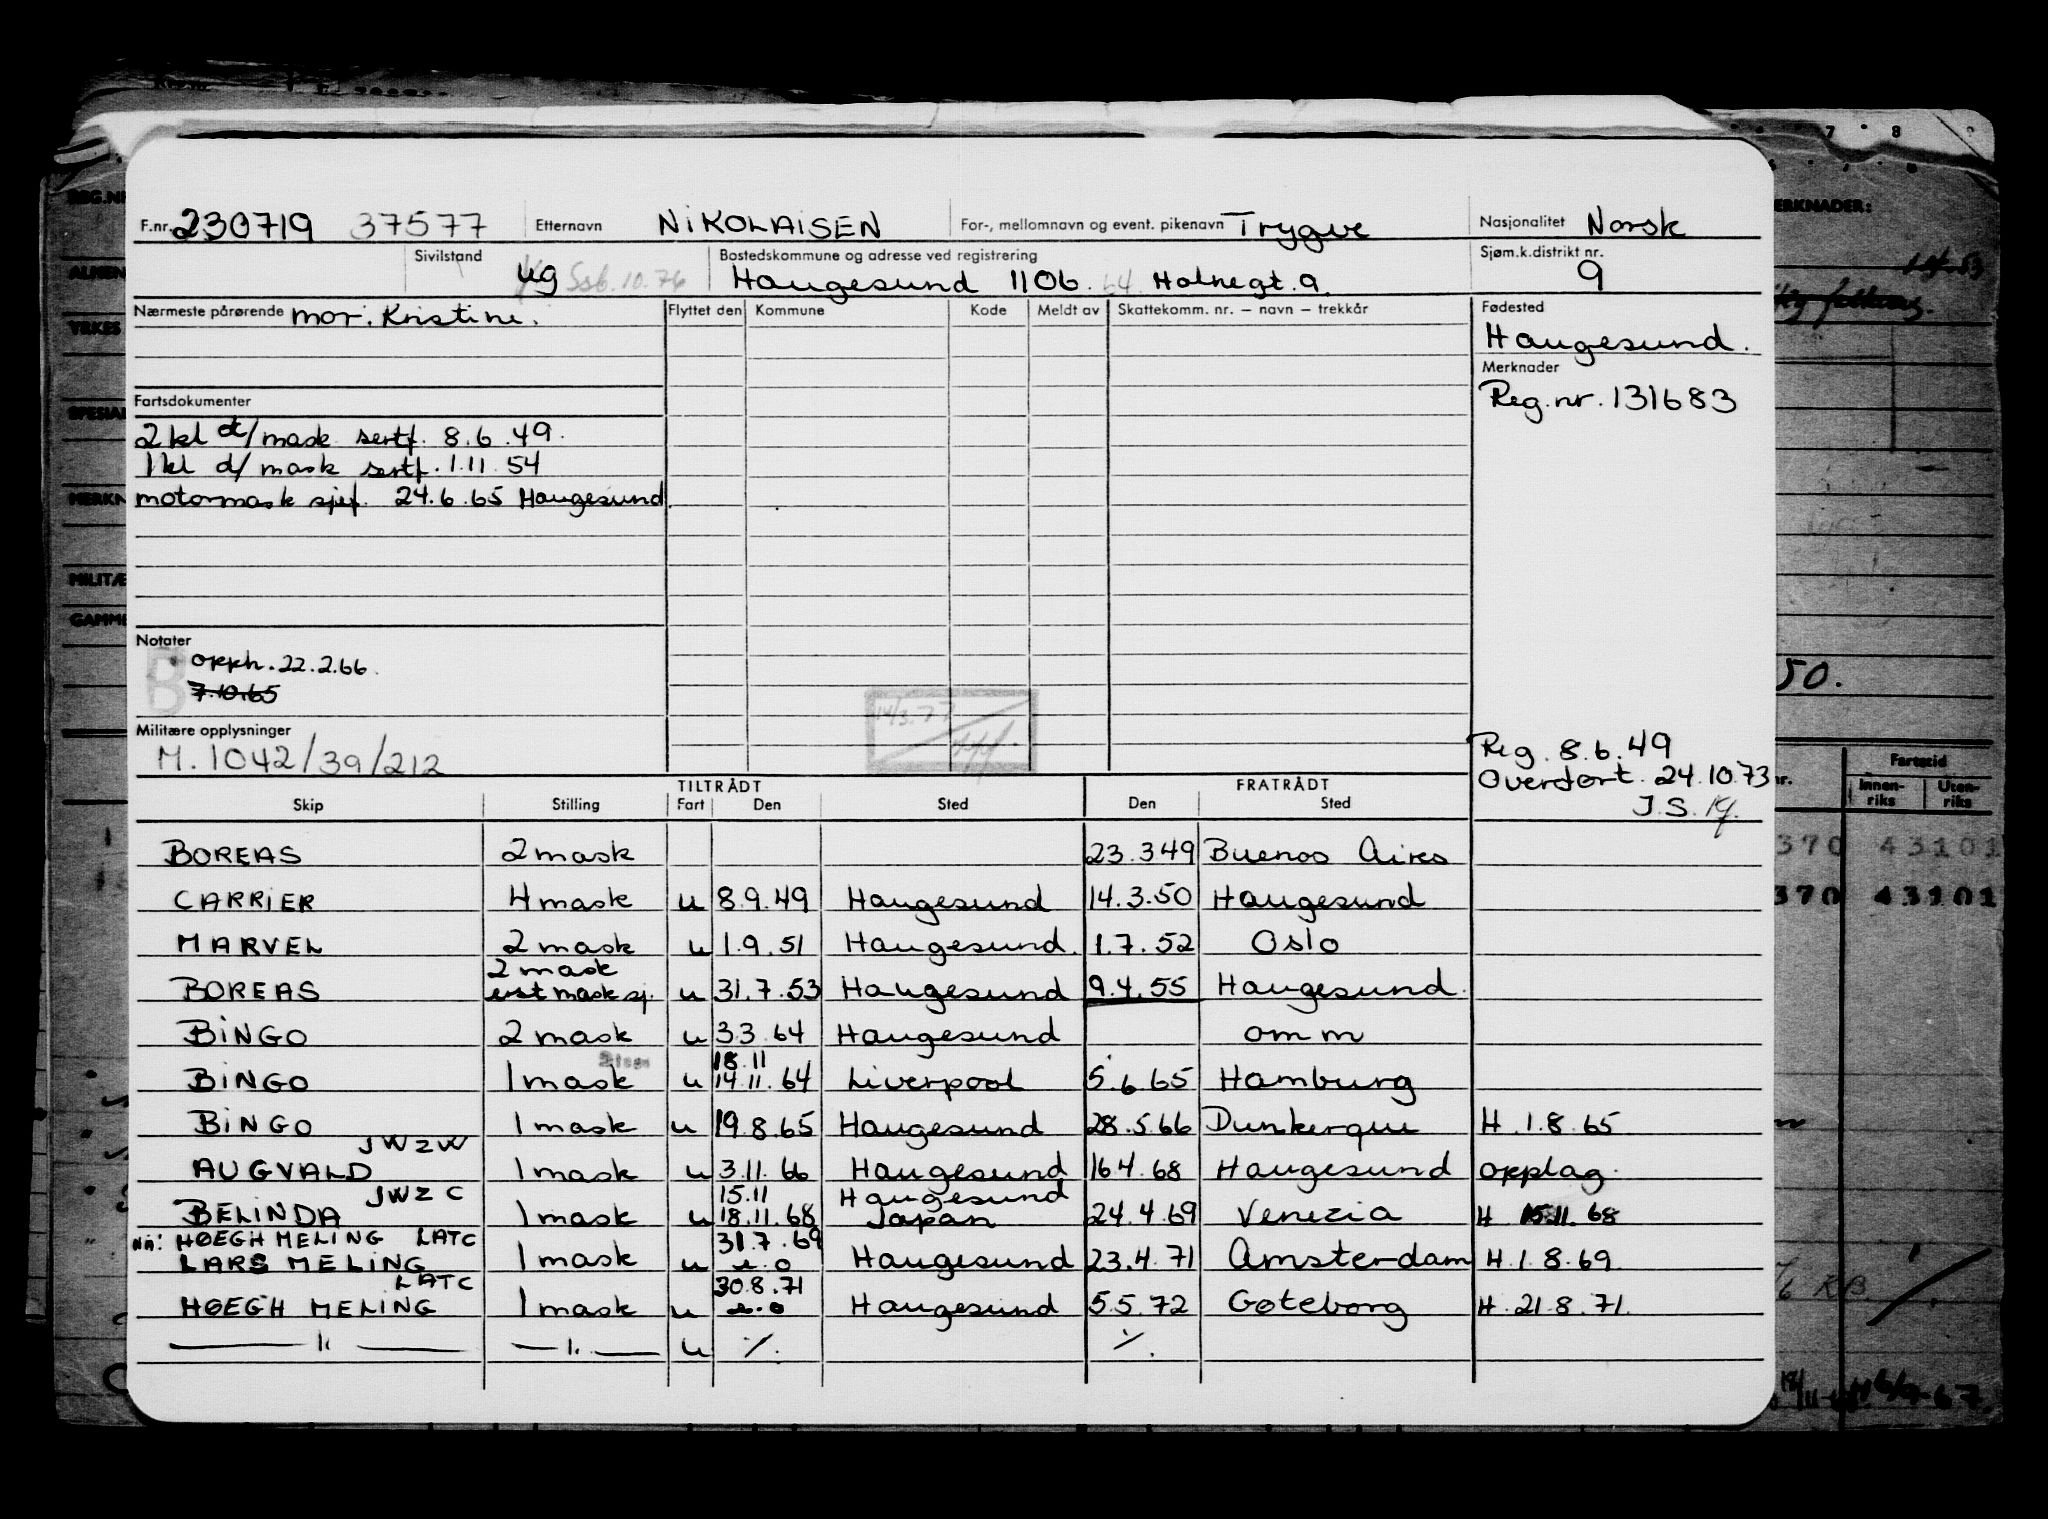 F.nr. 230719 37577 Etternavn NIKOLAISEN For-, mellomnavn og event. pikenavn Trygve Nasjonalitet Norsk
Sivilstand ug Ssb.10.76 Bostedskommune og adresse ved registrering Haugesund 1106. Halnegt. 9. Sjøm.k.distrikt nr. 9
Nærmeste pårørende mor. Kristine. Flyttet den Kommune Kode Meldt av Skattekomm. nr. – navn – trekkår Fødested
Haugesund.
Merknader
Reg.nr. 131683
Fartsdokumenter
2kl d/mask sertf. 8.6.49.
1kl d/mask sertf. 1.11.54
motormask sjef. 24.6.65 Haugesund
Notater
B
opph. 22.2.66.
7.10.65
14/3.77
Militære opplysninger
M. 1042/39/212
Reg. 8.6.49
Overført. 24.10.73
J.S.
TILTRÅDT FRATRÅDT
Skip Stilling Fart Den Sted Den Sted
BOREAS 2 mask 23.3 49 Buenos Aires
CARRIER 4 mask u 8.9.49 Haugesund 14.3.50 Haugesund
MARVEL 2 mask u 1.9.51 Haugesund. 1.7.52 Oslo
2 mask
BOREAS erst mask sj. u 31.7.53 Haugesund 9.4.55 Haugesund.
BINGO 2 mask u 3.3.64 Haugesund om m
18.11
BINGO 1 mask u 14.11.64 Liverpool 5.6.65 Hamburg
BINGO 1 mask u 19.8.65 Haugesund 28.5.66 Dunkerque H. 1.8.65
JWZW
AUGVALD 1 mask u 3.11.66 Haugesund 16.4.68 Haugesund opplag.
JWZC 15.11 Haugesund
BELINDA 1 mask u 18.11.68 Japan 24.4.69 Venezia H 15.11.68
nå: HØEGH MELING LATC 31.7.69
LARS MELING 1 mask u u.o Haugesund 23.4.71 Amsterdam H. 1.8.69.
LATC 30.8.71
HØEGH MELING 1 mask u u.o Haugesund 5.5.72 Gøteborg H. 21.8.71.
— " — — " — u ·/. ·/.
REG.NR
YRKES
GAMME
7 8
50.
Fartstid
nr. Innen-riks Uten-riks
370 43101
370 43101
6/9-67.